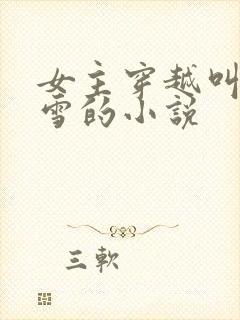 女主穿越叫
雪的小說
三軟